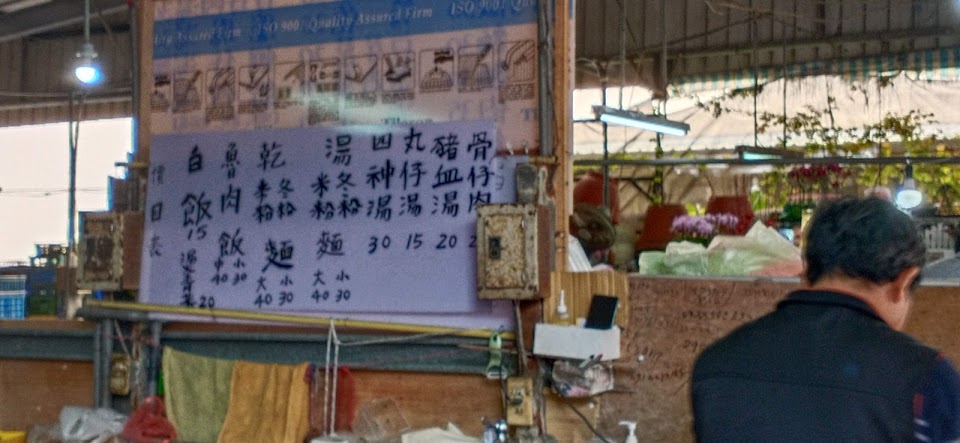 Quality Assured Firm
ISO 9001 Quality Assured Firm
ISO 9001 Quality
骨仔肉
豬血湯 20
丸仔湯 15
四神湯 30
湯 米粉 冬粉 麵 大40 小30
乾 米粉 冬粉 麵 大40 小30
魯肉飯 中40 小30
白飯 15
20
價目表